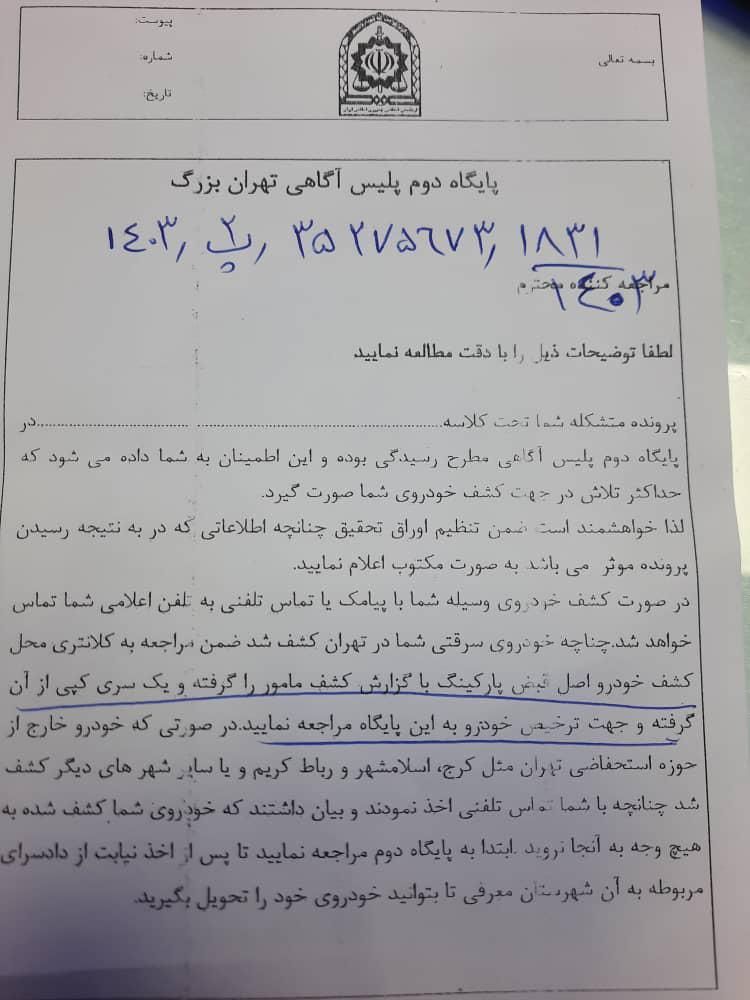 بسمه تعالی
پیوست:
شماره:
تاریخ:
پایگاه دوم پلیس آگاهی تهران بزرگ
۱۴۰۳٫ ۲/پ ٫ ۳۵۲۷۵۶۷۳٫ ۱۸۳۱/۱۴۰۳
مراجعه کننده محترم
لطفا توضیحات ذیل را با دقت مطالعه نمایید
پرونده متشکله شما تحت کلاسه..................................................در
پایگاه دوم پلیس آگاهی مطرح رسیدگی بوده و این اطمینان به شما داده می شود که
حداکثر تلاش در جهت کشف خودروی شما صورت گیرد.
لذا خواهشمند است ضمن تنظیم اوراق تحقیق چنانچه اطلاعاتی که در به نتیجه رسیدن
پرونده موثر می باشد به صورت مکتوب اعلام نمایید.
در صورت کشف خودروی وسیله شما با پیامک یا تماس تلفنی به تلفن اعلامی شما تماس
خواهد شد.چناچه خودروی سرقتی شما در تهران کشف شد ضمن مراجعه به کلانتری محل
کشف خودرو اصل قبض پارکینگ با گزارش کشف مامور را گرفته و یک سری کپی از آن
گرفته و جهت ترخیص خودرو به این پایگاه مراجعه نمایید.در صورتی که خودرو خارج از
حوزه استحفاضی تهران مثل کرج، اسلامشهر و رباط کریم و یا سایر شهر های دیگر کشف
شد چنانچه با شما تماس تلفنی اخذ نمودند و بیان داشتند که خودروی شما کشف شده به
هیچ وجه به آنجا نروید .ابتدا به پایگاه دوم مراجعه نمایید تا پس از اخذ نیابت از دادسرای
مربوطه به آن شهرستان معرفی تا بتوانید خودروی خود را تحویل بگیرید.